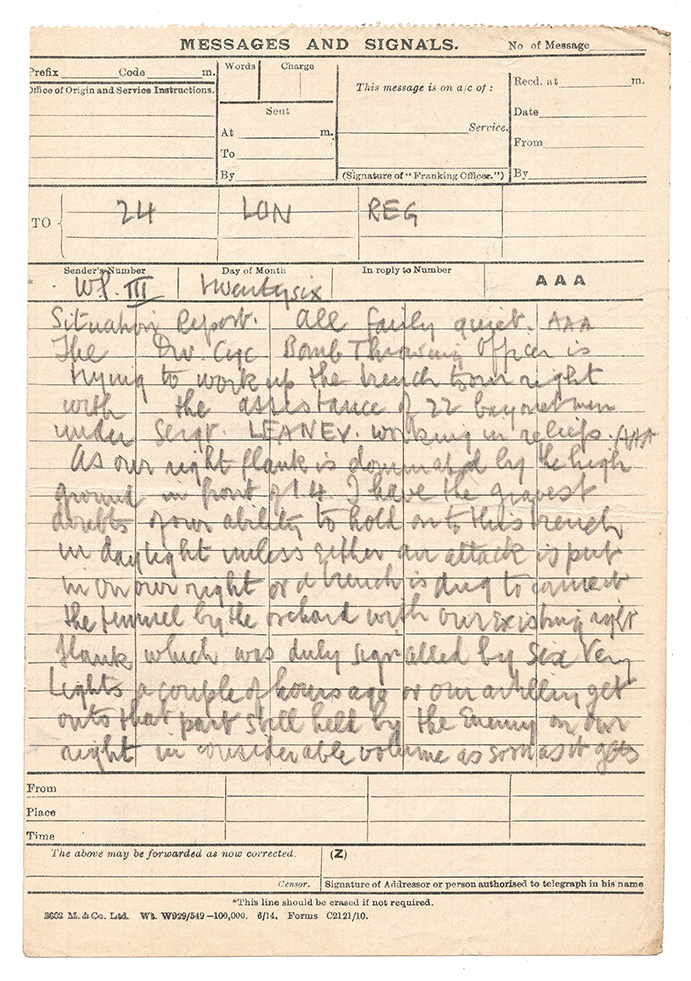 MESSAGES AND SIGNALS. No of Message
Prefix Code m. Words Charge This message is on a/c of : Recd. at m.
Office of Origin and Service Instructions. Sent Date
At m. Service. From
To
By (Signature of "Franking Officer.") By
TO 24 LON REG
Sender's Number Day of Month In reply to Number AAA
* WP. III twentysix
Situation Report. All fairly quiet. AAA
The Div. Cyc Bomb Throwing Officer is
trying to work up the trench to our right
with the assistance of 22 bayonet men
under Sergt. LEANEY. working in reliefs. AAA
As our right flank is dominated by the high
ground in front of I.4. I have the gravest
doubts of our ability to hold onto this trench
in daylight unless either an attack is put
in on our right or a trench is dug to connect
the funnel by the orchard with our existing right
flank which was duly signalled by six Very
Lights a couple of hours ago or our artillery get
onto that part still held by the Enemy on our
right in considerable volume as soon as it gets
From
Place
Time
The above may be forwarded as now corrected. (Z)
Censor. Signature of Addressor or person authorised to telegraph in his name
*This line should be erased if not required.
3602 M. & Co. Ltd. Wt. W929/549—100,000. 6/14. Forms C2121/10.